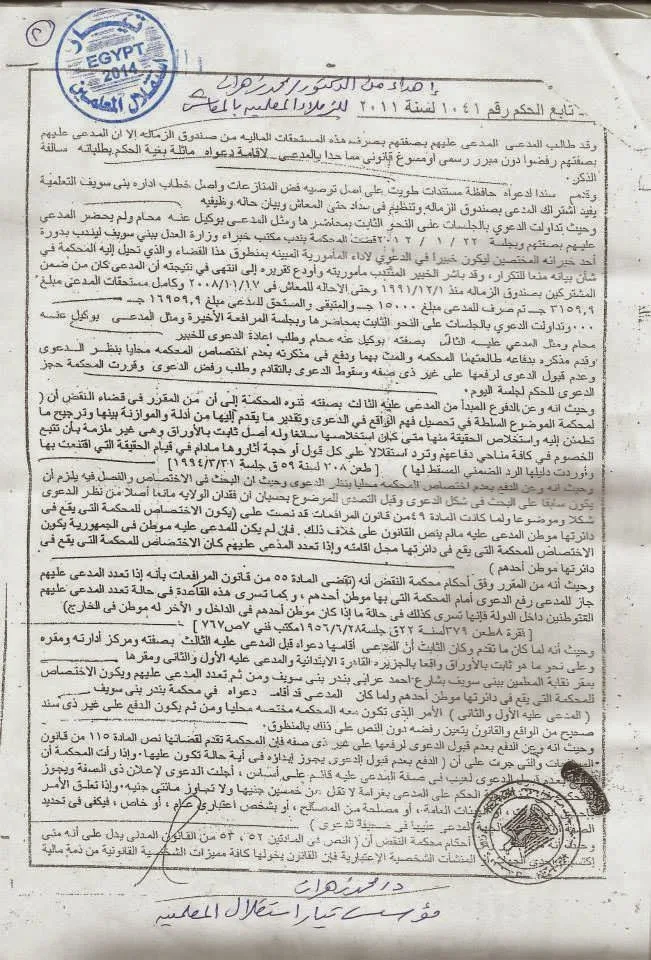 ٢
تيار
EGYPT
2014
استقلال المعلمين
إهداء من الدكتور/محمد زهران
تابع الحكم رقم ١٠٤١ لسنة ٢٠١١ للزملاء المعلمين بالمعاش
وقد طالب المدعى المدعى عليهم بصفتهم بصرف هذه المستحقات الماليه من صندوق الزماله إلا ان المدعى عليهم
بصفتهم رفضوا دون مبرر رسمى اومسوغ قانونى مما حدا بالمدعى لاقامة دعواه ماثلة بغية الحكم بطلباته سالفة
الذكر.
وقدم سندا لدعواه حافظة مستندات طويت على اصل توصيه فض المنازعات واصل خطاب اداره بنى سويف التعلمية
يفيد اشتراك المدعى بصندوق الزماله وتنظيم فى سداد حتى المعاش وبيان حاله وظيفيه
وحيث تداولت الدعوي بالجلسات على النحو الثابت بمحاضرها ومثل المدعى بوكيل عنه محام ولم يحضر المدعي
عليهم بصفتهم وبجلسة ٢٢ / ١ / ٢٠١٢ قضت المحكمة بندب مكتب خبراء وزارة العدل ببني سويف ليندب بدورة
أحد خبرائه المختصين ليكون خبيرا في الدعوي لاداء المأمورية المبينه بمنطوق هذا القضاء والذي تحيل إليه المحكمة في
شأن بيانه منعا للتكرار، وقد باشر الخبير المنتدب مأموريته وأودع تقريره إلى انتهى في نتيجته أن المدعى كان من ضمن
المشتركين بصندوق الزماله منذ ١٩٩١/١٢/١ وحتى الاحاله للمعاش فى ٢٠٠٨/١١/١٧ وكامل مستحقات المدعى مبلغ
٣١٥٩,٩ جـ تم صرف للمدعى مبلغ ١٥٠٠٠ جـ والمتبقى والمستحق للمدعى مبلغ ١٦٩٥٩,٩ جـ
٠٠٠ وتداولت الدعوي بالجلسات على النحو الثابت بمحاضرها وبجلسة المرافعة الأخيرة ومثل المدعى بوكيل عنه
محام ومثل المدعي عليه الثالث بصفته بوكيل عنه محام وطلب اعادة الدعوى للخبير
وقدم مذكره بدفاعه طالعتهما المحكمة والمت بهما ودفع فى مذكرته بعدم اختصاص المحكمه محليا بنظر الدعوى
وعدم قبول الدعوى لرفعها على غير ذى صفه وسقوط الدعوى بالتقادم وطلب رفض الدعوى وقررت المحكمة حجز
الدعوى للحكم لجلسة اليوم.
وحيث انه وعن الدفوع المبدأ من المدعى عليه الثالث بصفته تنوه المحكمة إلى أن من المقرر في قضاء النقض أن (
لمحكمة الموضوع السلطة في تحصيل فهم الواقع في الدعوى وتقدير ما يقدم إليها من أدلة والموازنة بينها وترجيح ما
تطمئن إليه واستخلاص الحقيقة منها متى كان استخلاصها سائغا وله أصل ثابت بالأوراق وهى غير ملزمة بأن تتبع
الخصوم في كافة مناحي دفاعهم وترد استقلالا على كل قول أو حجة أثاروها مادام في قيام الحقيقة التي اقتنعت بها
وأوردت دليلها الرد الضمني المسقط لها ) [ طعن ٢٠٨ لسنة ٥٩ ق جلسة ١٩٩٤/٣/٣١ ]
وحيث انه وعن الدفع بعدم اختصاص المحكمه محليا بنظر الدعوى وحيث ان البحث فى الاختصاص والفصل فيه يلزم أن
يكون سابقا على البحث في شكل الدعوى وقبل التصدى للموضوع بحسبان أن فقدان الولايه مانعا أصلا من نظر الدعوى
شكلا وموضوعا ولما كانت المادة ٤٩ من قانون المرافعات قد نصت على (يكون الاختصاص للمحكمة التي يقع في
دائرتها موطن المدعى عليه مالم ينص القانون على خلاف ذلك. فإن لم يكن للمدعى عليه موطن في الجمهورية يكون
الاختصاص للمحكمة التي يقع في دائرتها محل اقامته وإذا تعدد المدعي عليهم كان الاختصاص للمحكمة التي يقع في
دائرتها موطن أحدهم )
وحيث أنه من المقرر وفق أحكام محكمة النقض أنه (تقضى المادة ٥٥ من قانون المرافعات بأنه إذا تعدد المدعى عليهم
جاز للمدعى رفع الدعوى أمام المحكمة التي بها موطن أحدهم ، وكما تسرى هذه القاعدة في حالة تعدد المدعى عليهم
القتوطنين داخل الدولة فإنها تسرى كذلك في حالة ما إذا كان موطن أحدهم في الداخل و الأخر له موطن في الخارج)
[ فقرة ٨ طعن ٣٧٩ لسنة ٢٢ق جلسة ١٩٥٦/٦/٢٨ مكتب فني ٧ ص ٧٦٧ ]
وحيث أنه لما كان ما تقدم وكان الثابت أن المدعى أقامها دعواه قبل المدعى عليه الثالث بصفته ومركز أدارته ومقره
وعلى نحو ما هو ثابت بالأوراق واقعا بالجزيره القادرة الابتدائية والمدعى عليه الأول والثانى ومقرها
بمقر نقابة المعلمين ببنى سويف بشارع احمد عرابى بندر بنى سويف ومن ثم تعدد المدعى عليهم ويكون الاختصاص
للمحكمة التي يقع في دائرتها موطن أحدهم ولما كان المدعى قد أقام دعواه في محكمة بندر بنى سويف
( المدعى عليه الأول والثانى ) الأمر الذى تكون معه المحكمه مختصه محليا ومن ثم يكون الدفع على غير ذى سند
صحيح من الواقع والقانون يتعين رفضه دون النص على ذلك بالمنطوق.
وحيث انه وعن الدفع بعدم قبول الدعوى لرفعها على غير ذى صفه فإن المحكمة تقدم لقضائها نص المادة ١١٥ من قانون
والتى جرت على أن ( الدفع بعدم قبول الدعوى يجوز إبداؤه في أية حالة تكون عليها. وإذا رأت المحكمة أن
بعدم قبول الدعوى لعيب في صفة المدعى عليه قائم على أساس، أجلت الدعوى لإعلان ذى الصفة ويجوز
الحكم على المدعى بغرامة لا تقل عن خمسين جنيها ولا تجاوز مائتى جنيه. وإذا تعلق الأمر
العامة، أو مصلحة من المصالح، أو بشخص اعتباري عام، أو خاص، فيكفى في تحديد
المدعى عليها في صحيفة الدعوى )
وحيث أنه أحكام محكمة النقض أن ( النص في المادتين ٥٢، ٥٣ من القانون المدنى يدل على أنه متى
المنشآت الشخصية الإعتبارية فإن القانون يخولها كافة مميزات الشخصية القانونية من ذمة مالية
د/محمد زهران
مؤسس تيار استقلال المعلمين